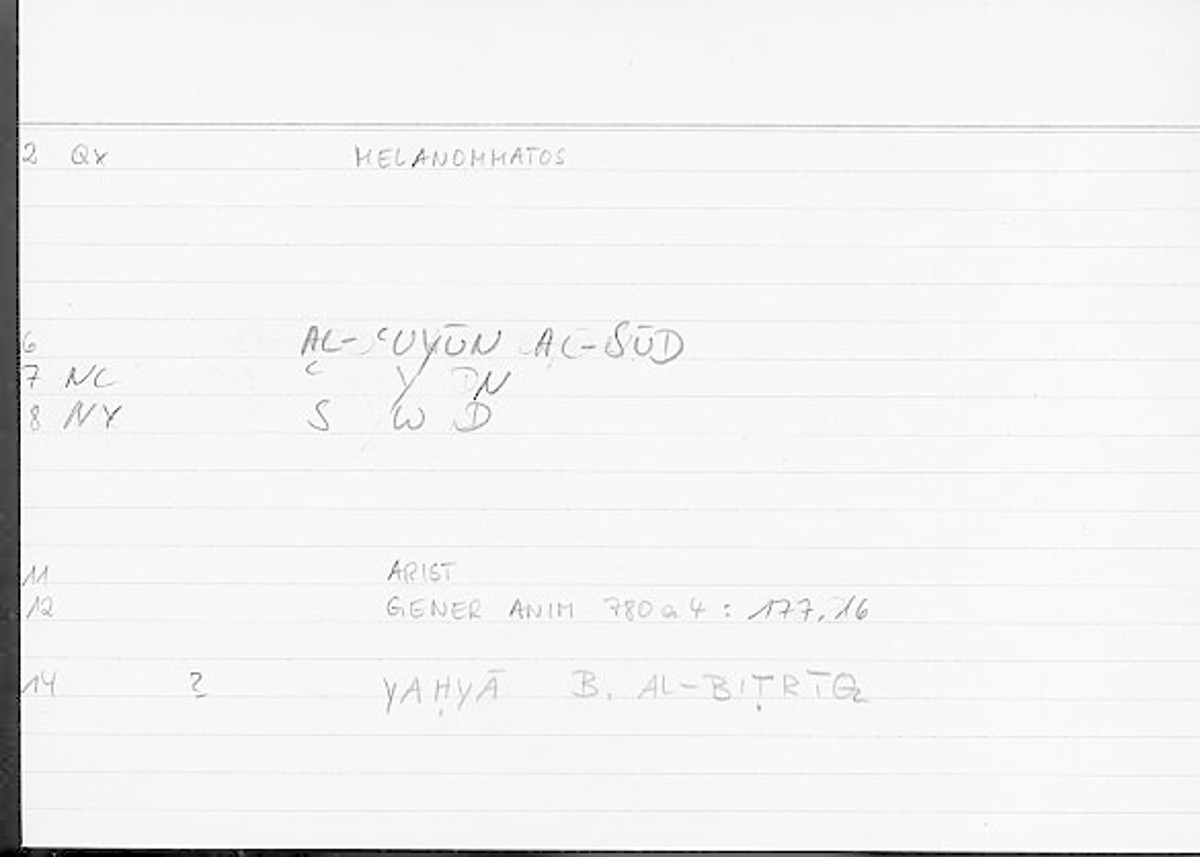 2 QX MELANOMMATOS
6 AL-ʿUYŪN AL-SŪD
7 NC ʿ Y N
8 NX S W D
11 ARIST
12 GENER ANIM 780a4 : 177,16
14 ? YAḤYĀ B. AL-BIṬRĪQ